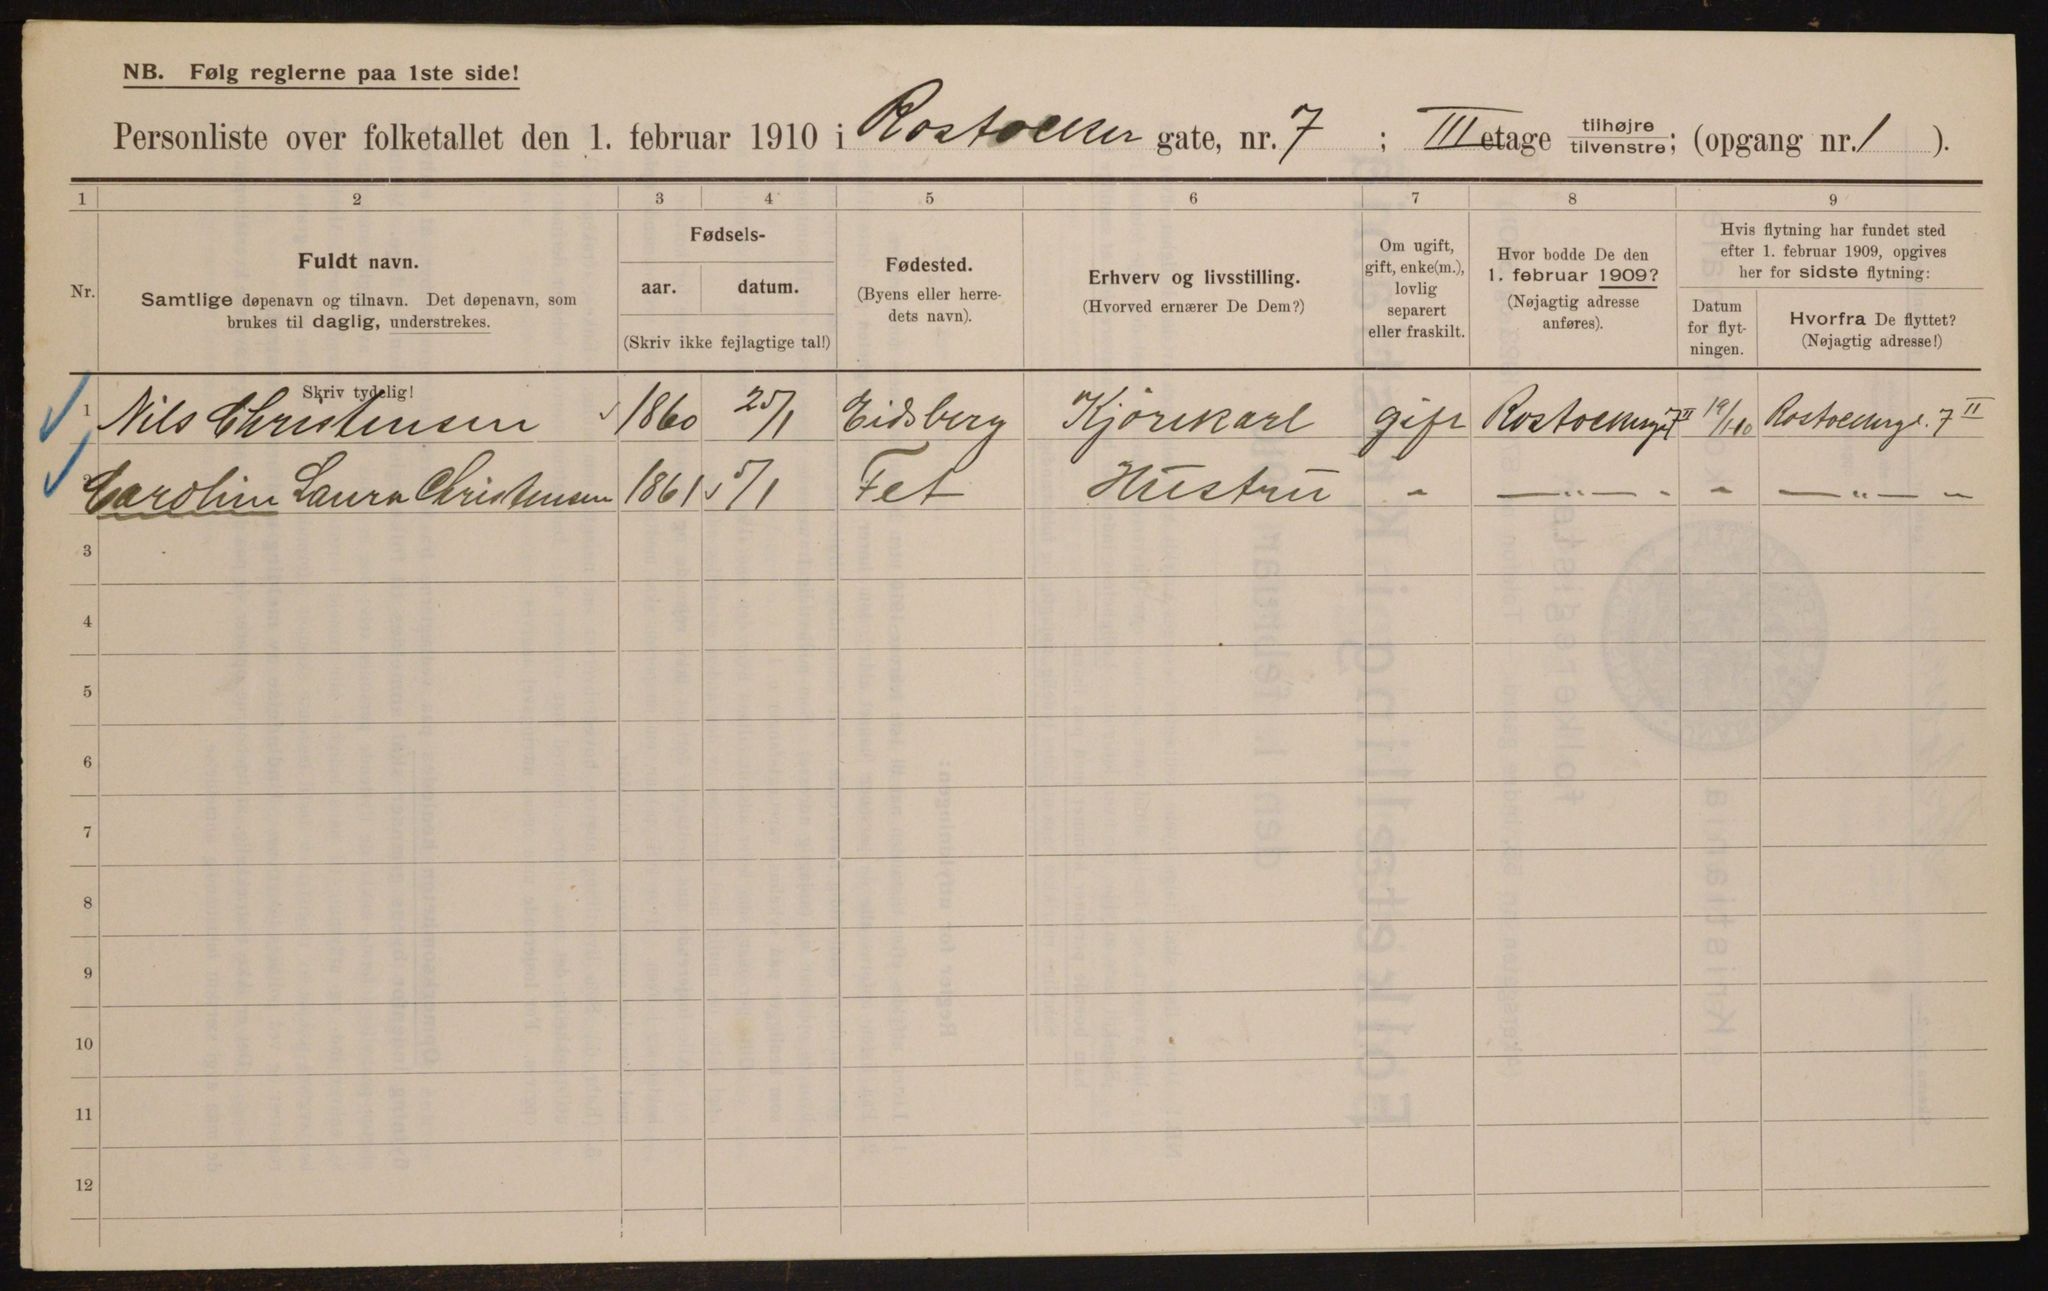 NB. Følg reglerne paa 1ste side!
Personliste over folketallet den 1. februar 1910 i Rostocker gate, nr. 7 ; III etage tilhøjre tilvenstre; (opgang nr. 1 ).
1 2 3 4 5 6 7 8 9
Nr.
Fuldt navn.
Samtlige døpenavn og tilnavn. Det døpenavn, som
brukes til daglig, understrekes.
Fødsels-
aar. datum.
(Skriv ikke fejlagtige tal!)
Fødested.
(Byens eller herre-
dets navn).
Erhverv og livsstilling.
(Hvorved ernærer De Dem?)
Om ugift,
gift, enke(m.),
lovlig
separert
eller fraskilt.
Hvor bodde De den
1. februar 1909?
(Nøjagtig adresse
anføres).
Hvis flytning har fundet sted
efter 1. februar 1909, opgives
her for sidste flytning:
Datum
for flyt-
ningen.
Hvorfra De flyttet?
(Nøjagtig adresse!)
Skriv tydelig!
1 Nils Christensen 1860 25/1 Eidsberg Kjörekarl gift Rostockergt 7 II 19/1-10 Rostockergt. 7 II
2 Carolin Laura Christensen 1861 5/1 Fet Hustru " — " — " — " —
3
4
5
6
7
8
9
10
11
12